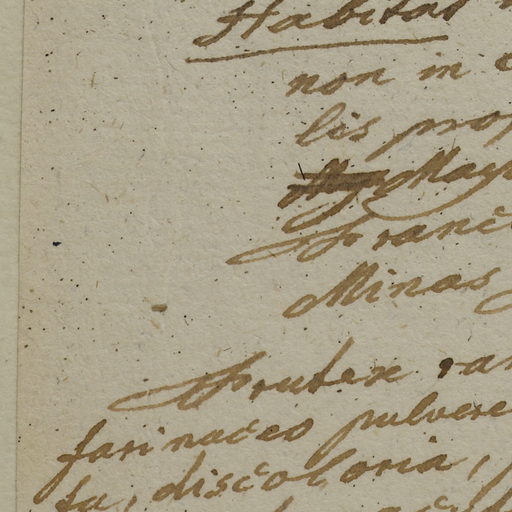 Habitat
non in
lis prop
May
Franc
Minas
Frutex ra
farinaceo pulvere
ta, discoloria,